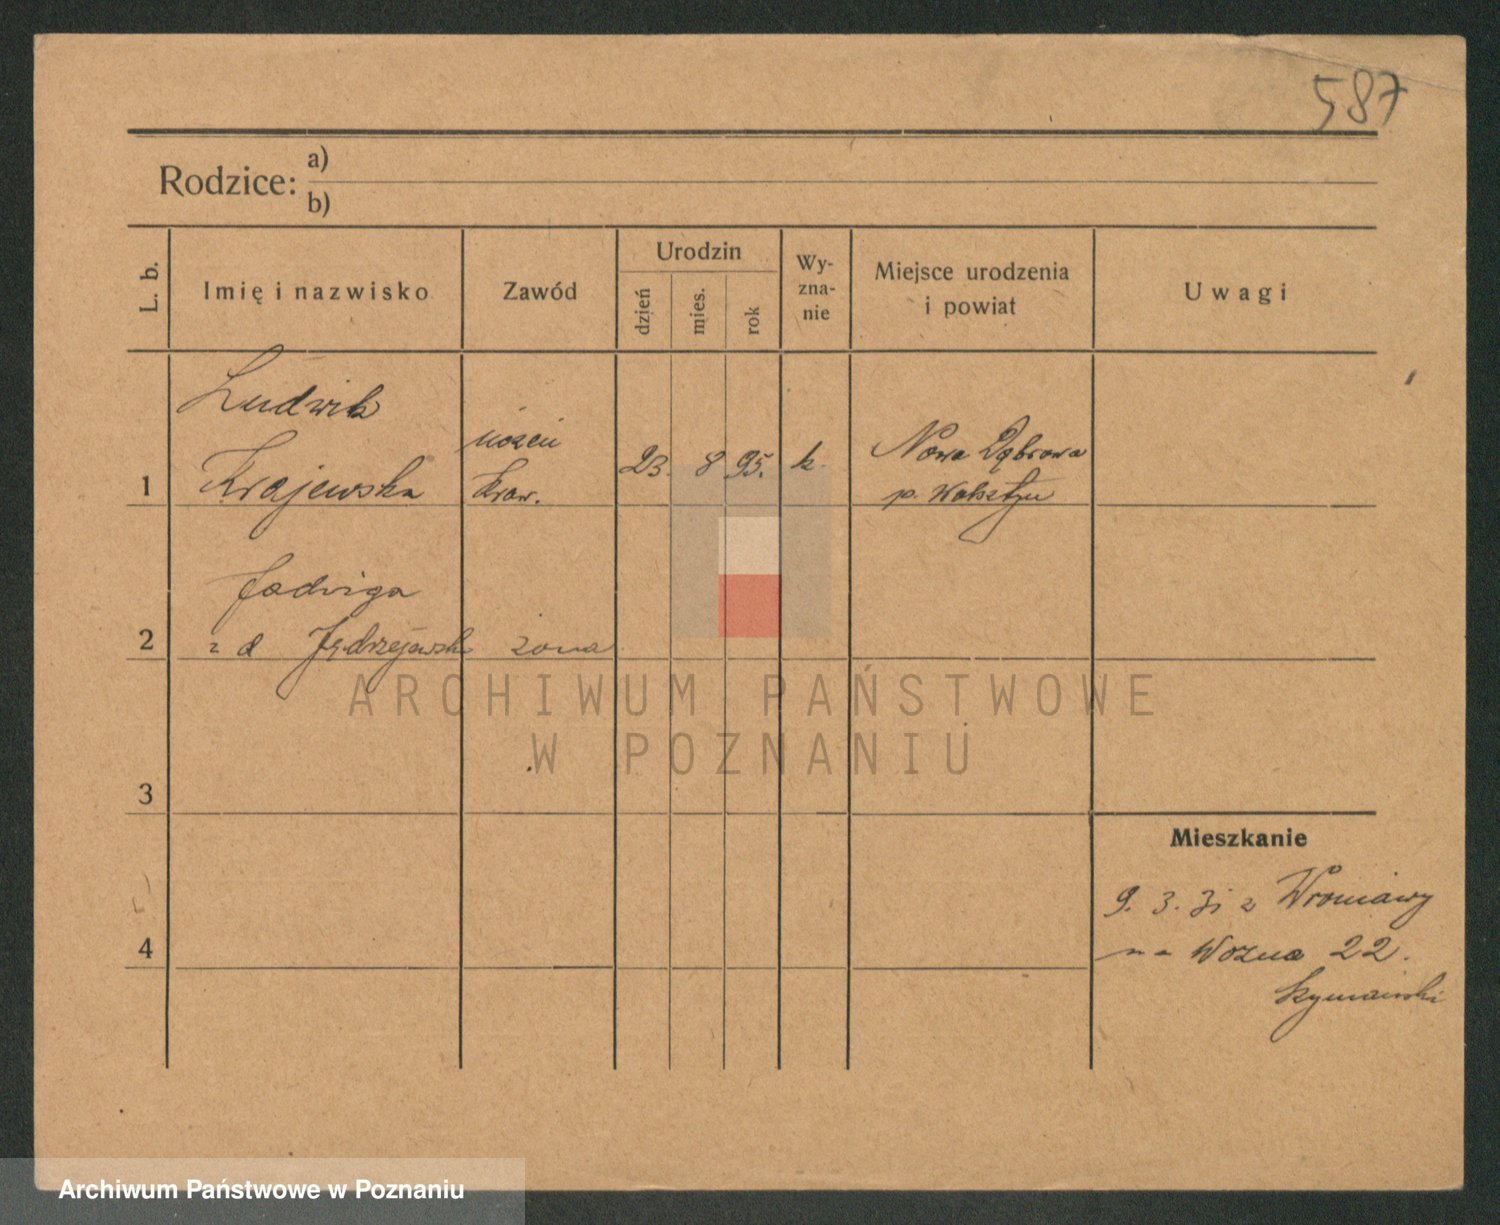 587
Rodzice: a)
b)
L. b.
Imię i nazwisko
Zawód
Urodzin
dzień
mies.
rok
Wy-
zna-
nie
Miejsce urodzenia
i powiat
Uwagi
1
Ludwik
Krajewska
uczeń
kraw.
23. 8 95.
k.
Nowa Dąbrowa
p. Wolsztyn
2
Jadwiga
z d Jędrzejewsk
żona
ARCHIWUM PAŃSTWOWE
W POZNANIU
3
4
Mieszkanie
9. 3. 31 z Wroniawy
na Wozna 22.
Archiwum Państwowe w Poznaniu